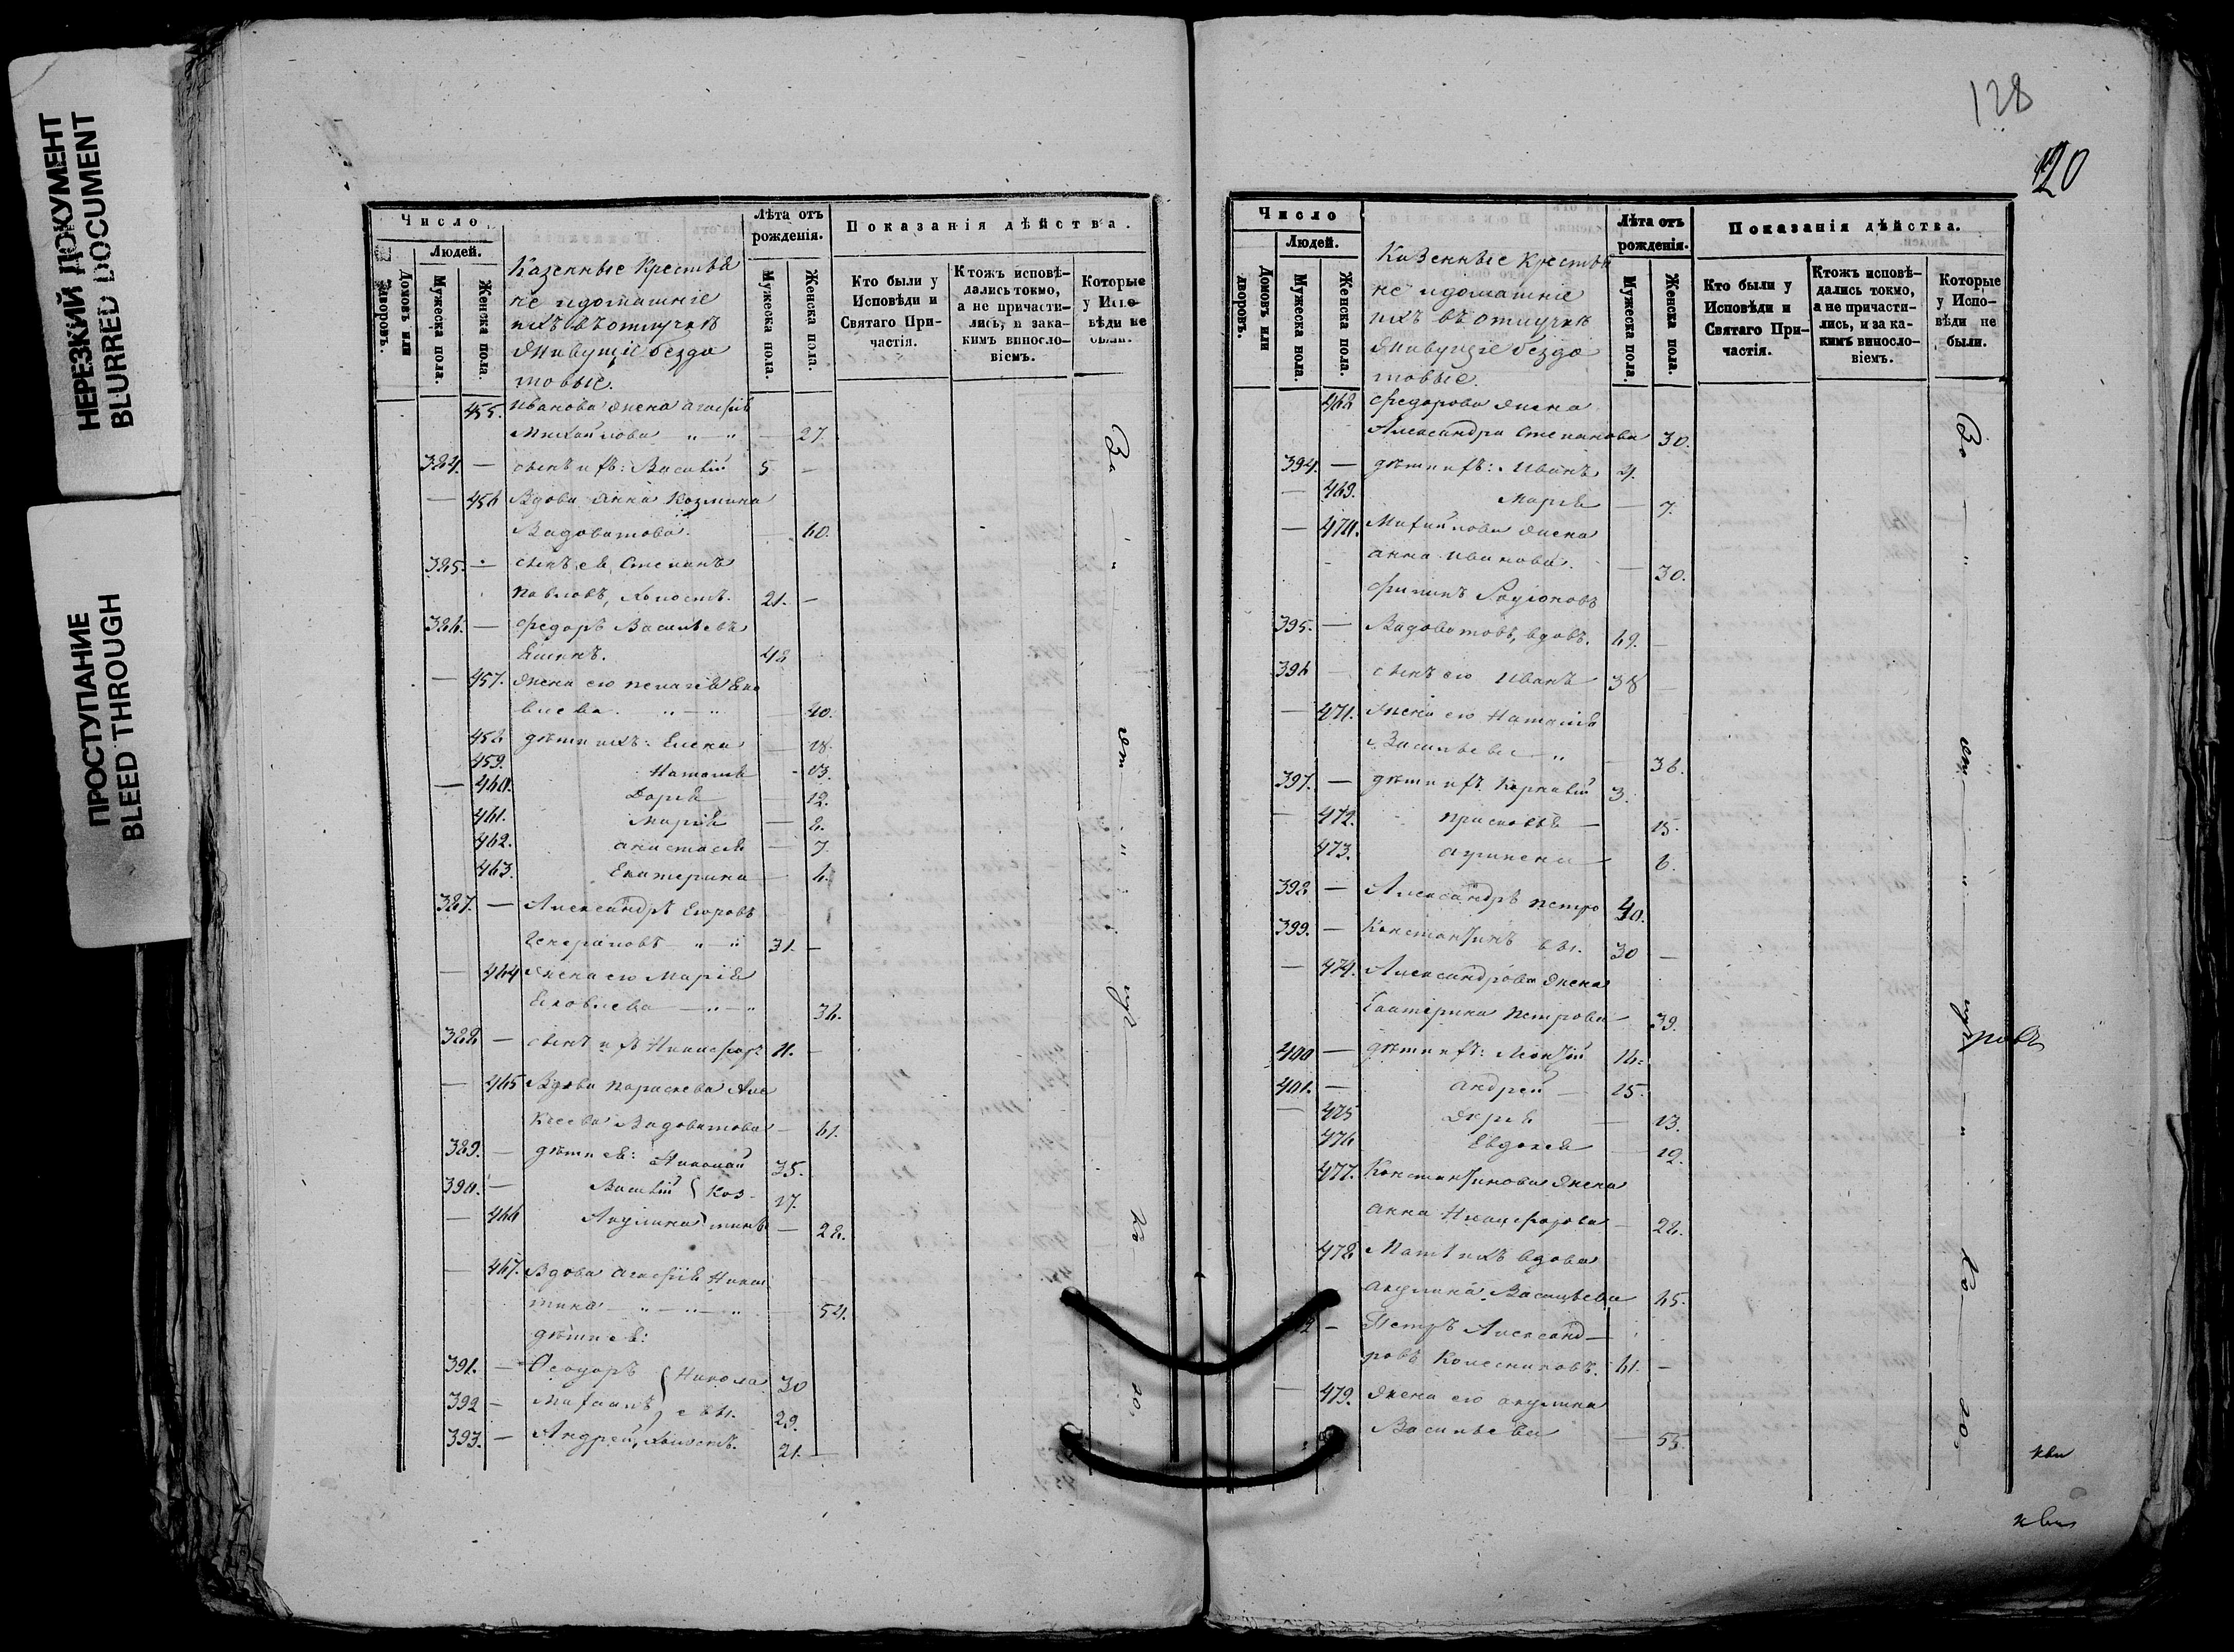 НЕРЕЗКИЙ ДОКУМЕНТ
BLURRED DOCUMENT
ПРОСТУПАНИЕ
BLEED THROUGH
Число
Людей.
Домовъ или дворовъ.
Мужеска пола.
Женска пола.
Казенные Крестья
не и домашніе
ихъ въ отлучкѣ
живущіе бездо
мовые.
Лѣта отъ рожденія.
Мужеска пола.
Женска пола.
Показанія дѣйства.
Кто были у Исповѣди и Святаго Причастія.
Ктожъ исповѣдались токмо, а не причастились, и закакимъ винословіемъ.
Которые у Исповѣди не были.
455. Иванова жена Агафія
Михайлова 27.
384. — сынъ ихъ: Василій 5 —
— 456 Вдова Анна Козмина
Вадоватова. 60.
385. — сынъ ея Степанъ
Павловъ, холостъ. 21. —
386. — Федоръ Васильевъ
48
— 457. жена его Пелагія Яко
влева 40.
458 дѣти ихъ: Елена — 18.
459. Наталія - 13.
— 460. Дарія — 12.
461. Марія — 8.
462. Анастасія — 7
463. Екатерина — 6.
387. — Александръ Егоровъ
31. —
— 464 жена его Марія
Яковлева 36.
388 — сынъ ихъ Никифоръ 11. —
— 465 Вдова Параскева Але
ксеева Вадоватова — 61.
389. — дѣти ея: Николай 35.
390. — Василій Коз- 17.
— 466 Акулина мины — 28.
— 467. Вдова Агафія Ники
тина 54.
дѣти ея:
391. — Ѳеодоръ Никола 30
392 — Михаилъ евы. 29.
393. — Андрей, холостъ. 21. —
За
от
луч
кою,
128
120
Число
Людей.
Домовъ или дворовъ.
Мужеска пола.
Женска пола.
Казенные Крестья
не и домашніе
ихъ въ отлучкѣ
живущіе бездо
мовые.
Лѣта отъ рожденія.
Мужеска пола.
Женска пола.
Показанія дѣйства.
Кто были у Исповѣди и Святаго Причастія.
Ктожъ исповѣдались токмо, а не причастились, и за какимъ винословіемъ.
Которые у Исповѣди не были.
468 Федорова жена
Александра Степанова 30.
394. — дѣти ихъ: Иванъ 4.
— 469. Марія — 7.
— 470. Михайлова жена
Анна Иванова. — 30.
Филипъ Родіоновъ
395. — Вадоватовъ, вдовъ. 69. —
396 — сынъ его Иванъ 38 —
— 471. жена его Наталія
Васильева — 36.
397. — дѣти ихъ 3.
— 472. Прасковья — 15.
473. Агрипена 6.
398 — Александръ Петро 40.
399. — Константинъ вы. 30 —
— 474. Александрова жена
Екатерина Петрова 39.
400 — дѣти ихъ: 16.
401. — Андрей — 15.
— 475 Дарія — 13.
476 Евдокія 12.
477. Константинова жена
Анна Никифорова — 28.
478 Мать ихъ вдова
Акулина Васильева 65.
— Петръ Александ-
ровъ Колесниковъ. 61. —
— 479. жена его Акулина
Васильева — 55.
За
от
луч
кою,